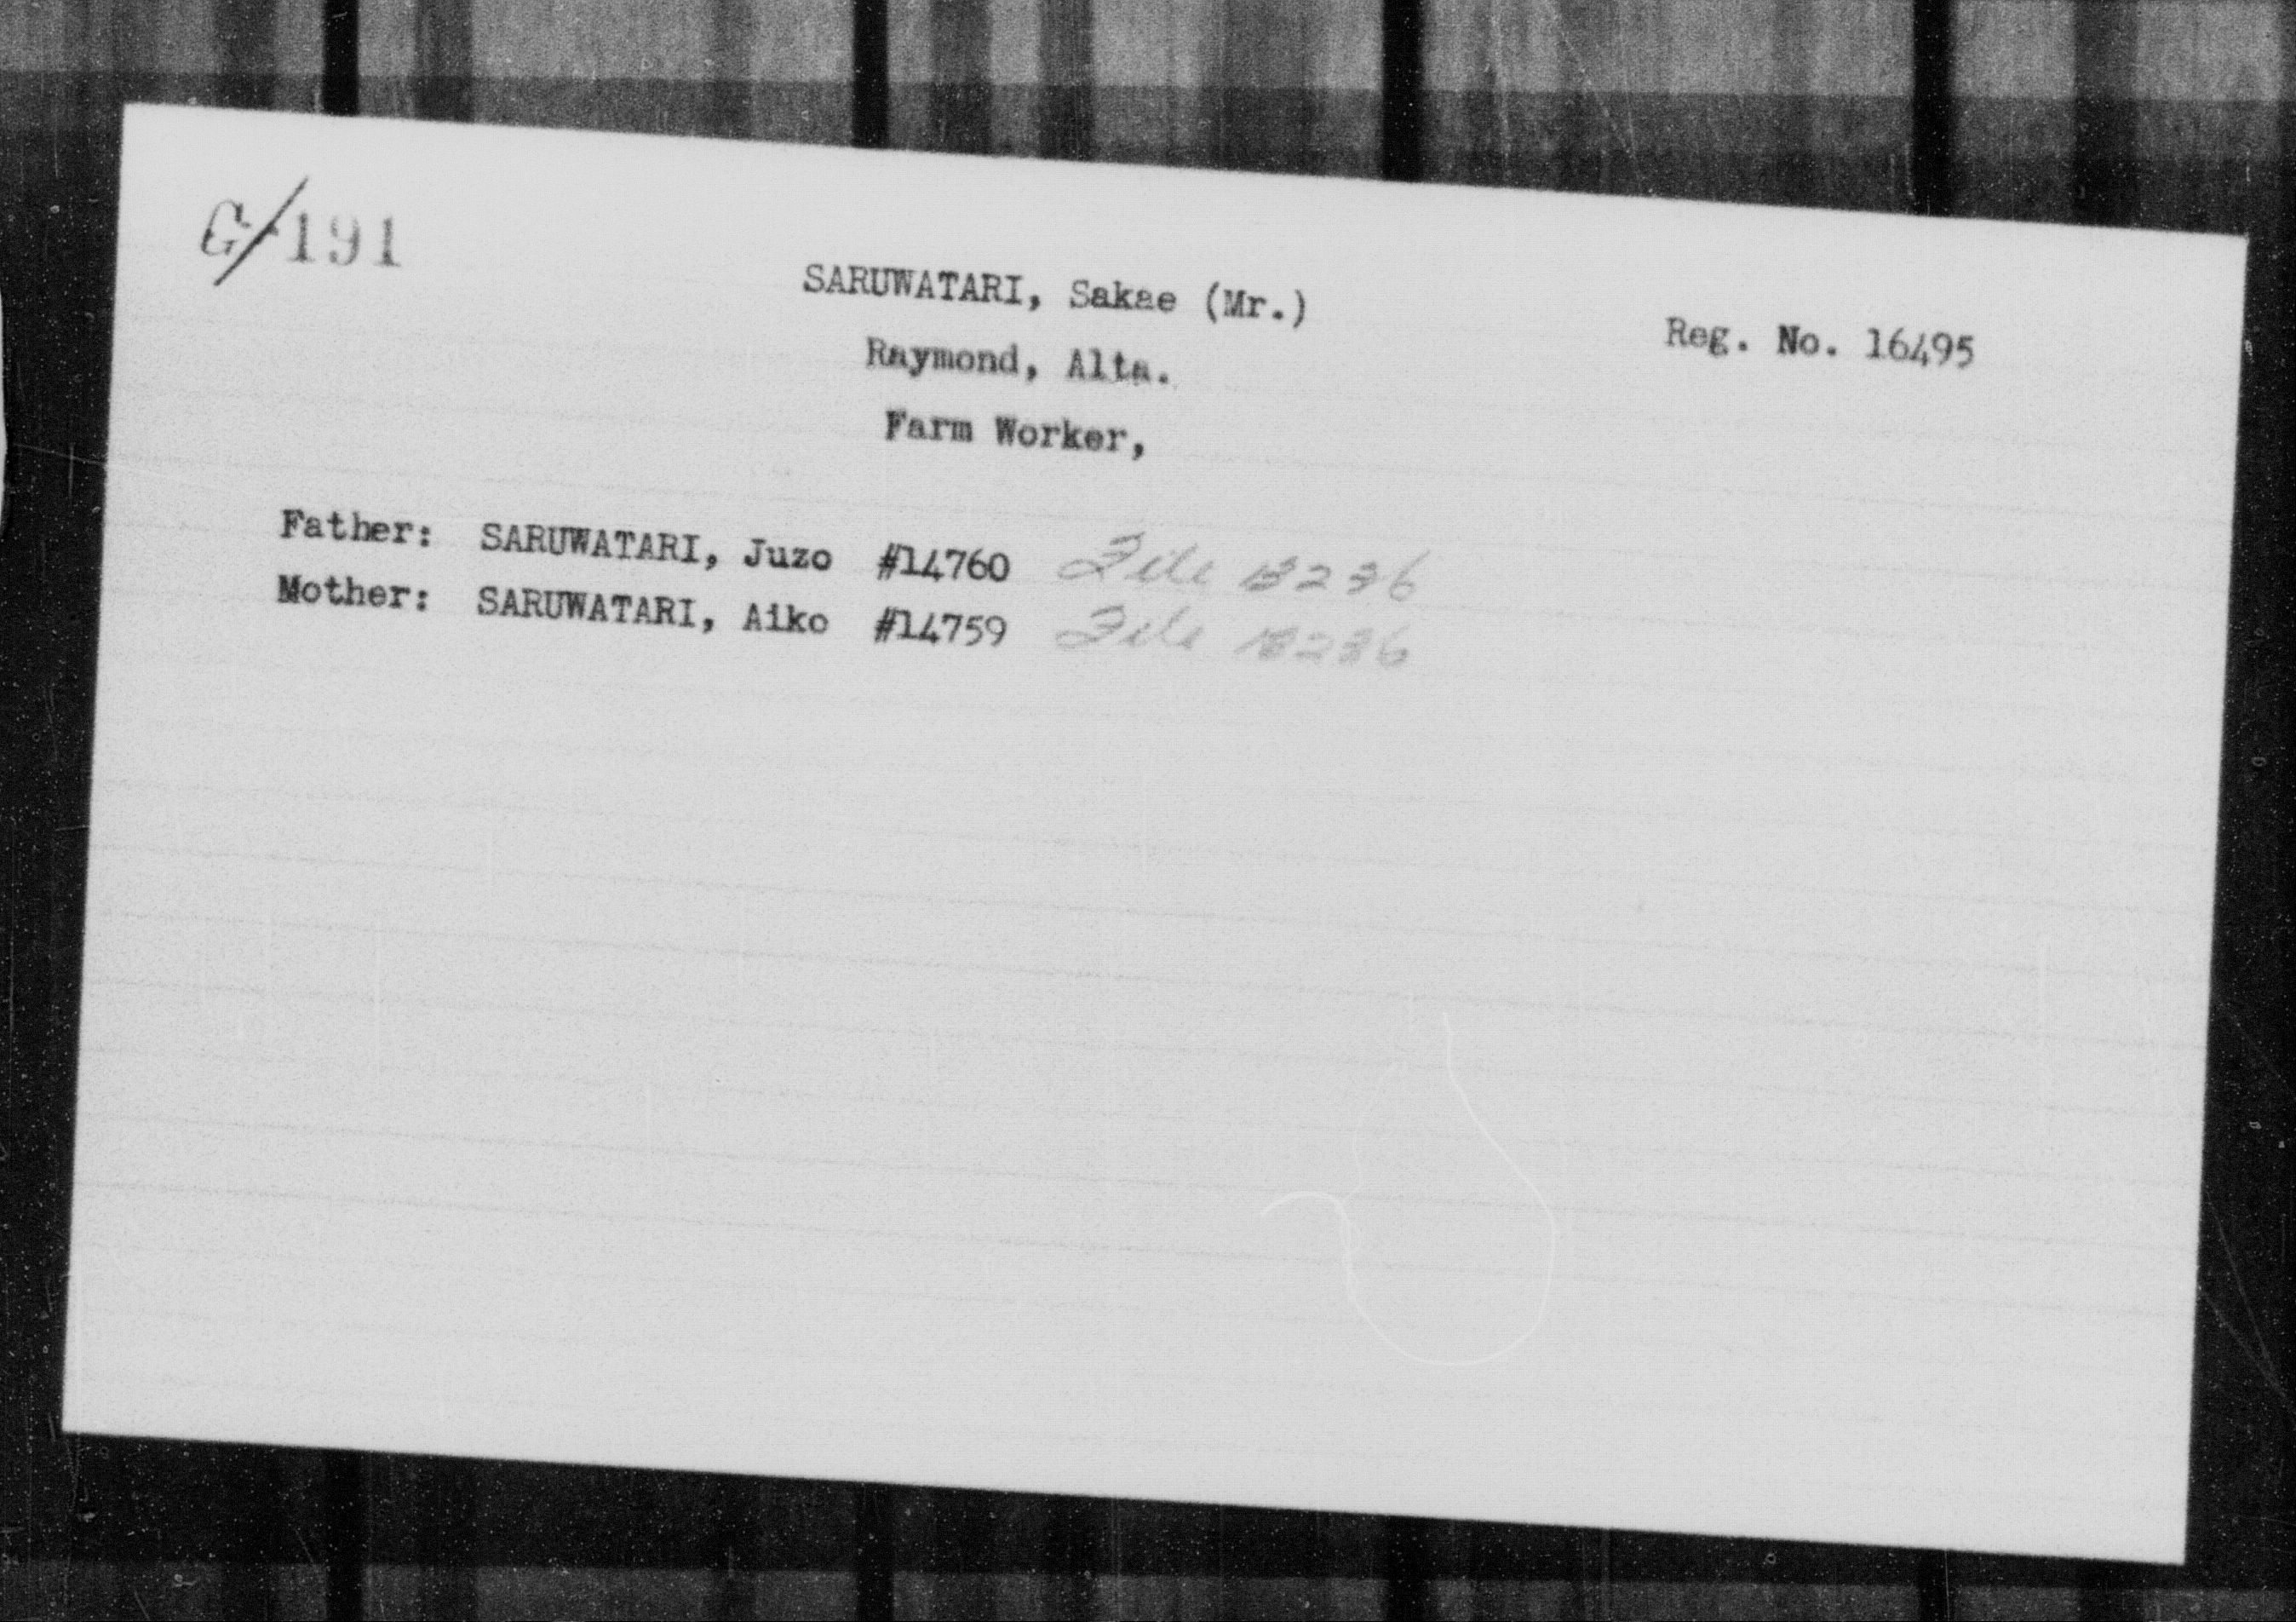 G/191
SARUWATARI, Sakae (Mr.)
Reg. No. 16495
Raymond, Alta.
Farm Worker,
Father: SARUWATARI, Juzo #14760 File
Mother: SARUWATARI, Aiko #14759 File